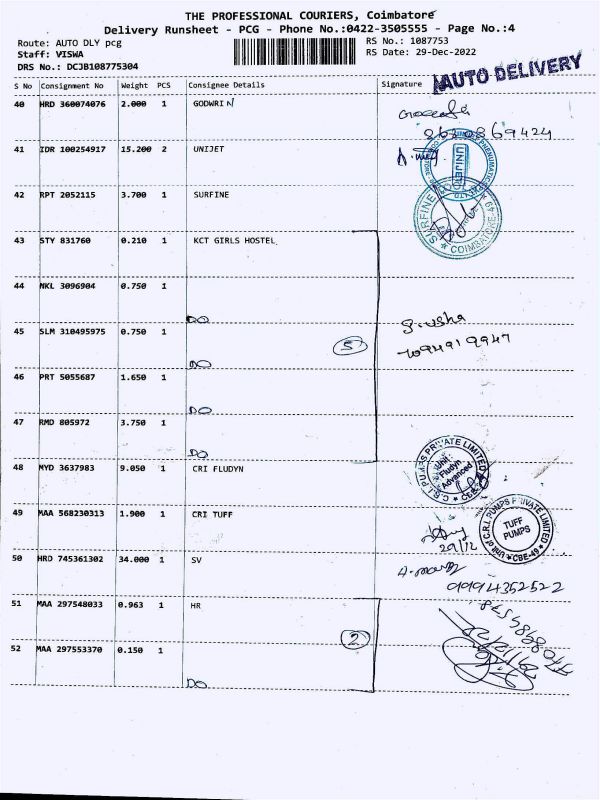 THE PROFESSIONAL COURIERS, Coimbatore
Delivery Runsheet - PCG - Phone No.:0422-3505555 - Page No.:4
Route: AUTO DLY pcg RS No.: 1087753
Staff: VISWA RS Date: 29-Dec-2022
DRS No.: DCJB108775304
AUTO DELIVERY
S No Consignment No Weight PCS Consignee Details Signature
40 HRD 360074076 2.000 1 GODWRIN
41 IDR 100254917 15.200 2 UNIJET
UNIJET
42 RPT 2052115 3.700 1 SURFINE
SURFINE
COIMBATORE-49
43 STY 831760 0.210 1 KCT GIRLS HOSTEL
44 NKL 3096904 0.750 1
DO
45 SLM 310495975 0.750 1 5
DO
46 PRT 5055687 1.650 1
DO
47 RMD 805972 3.750 1
DO
48 MYD 3637983 9.050 1 CRI FLUDYN
C.R.I. PUMPS PRIVATE LIMITED
Unit:
Fludyn
Advanced
49 MAA 568230313 1.900 1 CRI TUFF
29/12
Unit of C.R.I. PUMPS PRIVATE LIMITED
TUFF
PUMPS
CBE-49
50 HRD 745361302 34.000 1 SV
9994352522
51 MAA 297548033 0.963 1 HR
2
52 MAA 297553370 0.150 1
DO